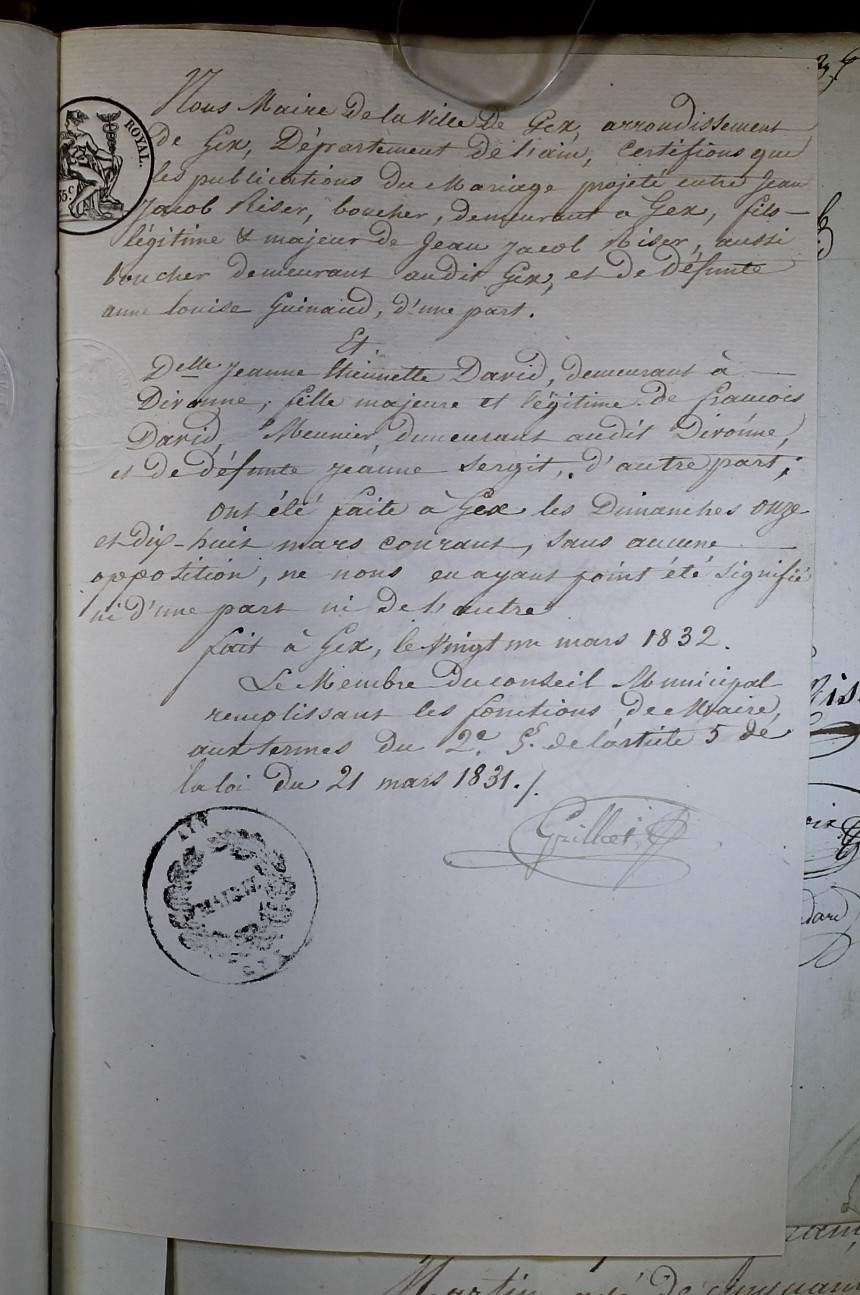 Nous Maire de la Ville de Gex, arrondissement
de Gex, Département de l'ain, certifions que
les publications du Mariage projeté entre Jean
Jacob Riser, boucher, demeurant à Gex, fils
légitime & majeur de Jean Jacob Riser, aussi
boucher demeurant audit Gex, et de défunte
anne Louise Guinaud, d'une part.
Et
Delle Jeanne Etiennette David, demeurant à
Divonne, fille majeure et légitime de francois
David, Meunier, demeurant audit Divonne,
et de défunte jeanne Sergit, d'autre part;
ont été faite à Gex les Dimanches onze
et dix-huit mars courant, sans aucune
opposition, ne nous en ayant point été signifié
ni d'une part ni de l'autre
fait à Gex, le vingt un mars 1832.
Le Membre du conseil Municipal
remplissant les fonctions de Maire,
aux termes du 2e. §. de l'article 5 de
la loi du 21 mars 1831./.
Grillet
ROYAL.
35.c
AIN
MAIRIE
GEX